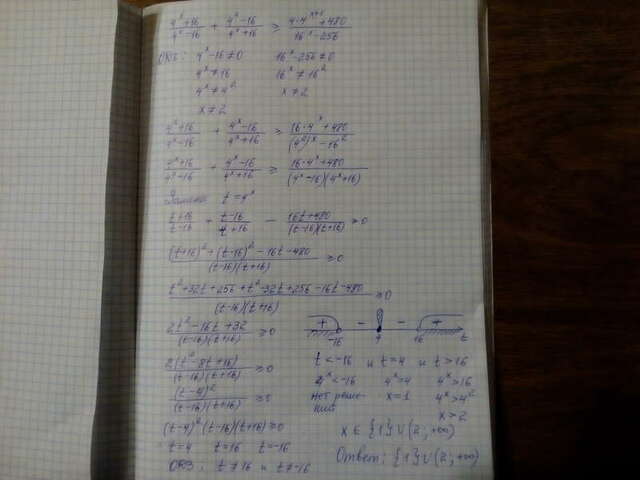 (4^x+16)/(4^x-16) + (4^x-16)/(4^x+16) ≥ (4·4^(x+1)+480)/(16^x-256)
ОДЗ: 4^x-16≠0   16^x-256≠0
4^x≠16   16^x≠16^2
4^x≠4^2   x≠2
x≠2
(4^x+16)/(4^x-16) + (4^x-16)/(4^x+16) ≥ (16·4^x+480)/((4^2)^x-16^2)
(4^x+16)/(4^x-16) + (4^x-16)/(4^x+16) ≥ (16·4^x+480)/((4^x-16)(4^x+16))
Замена t=4^x
(t+16)/(t-16) + (t-16)/(t+16) - (16t+480)/((t-16)(t+16)) ≥0
((t+16)^2+(t-16)^2-16t-480)/((t-16)(t+16)) ≥0
(t^2+32t+256+t^2-32t+256-16t-480)/((t-16)(t+16)) ≥0
(2t^2-16t+32)/((t-16)(t+16)) ≥0
2(t^2-8t+16)/((t-16)(t+16)) ≥0
(t-4)^2/((t-16)(t+16)) ≥0
(t-4)^2(t-16)(t+16)≥0
t=4 t=16 t=-16
ОДЗ: t≠16 и t≠-16
+ - - +
-16 4 16 t
t<-16 и t=4 и t>16
4^x<-16 4^x=4 4^x>16
нет реше- x=1 4^x>4^2
ний x>2
x∈{1}∪(2;+∞)
Ответ: {1}∪(2;+∞)